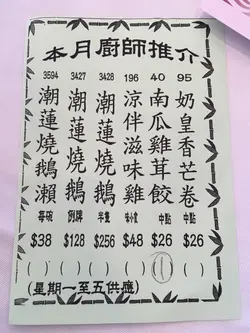 本月廚師推介
3594 3427 3428 196 40 95
潮蓮燒鵝瀨
潮蓮燒鵝
潮蓮燒鵝
涼伴滋味雞
南瓜雞茸餃
奶皇香芒卷
每碗 例牌 半隻 中點 中點
$38 $128 $256 $48 $26 $26
( ) ( ) ( ) ( ) ( ) ( )
(星期一至五供應)